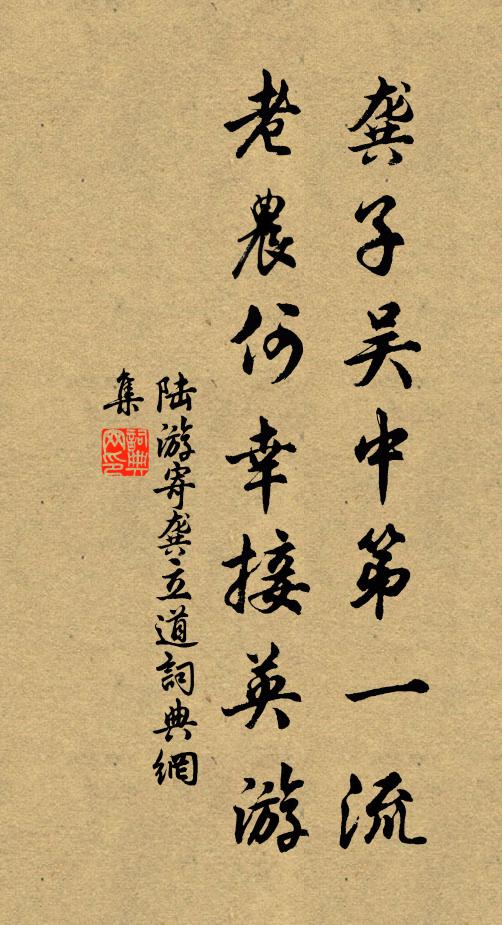 龚子吴中第一流
老農何幸接英游
陆游寄龚立道詞典網
集
詞典网印